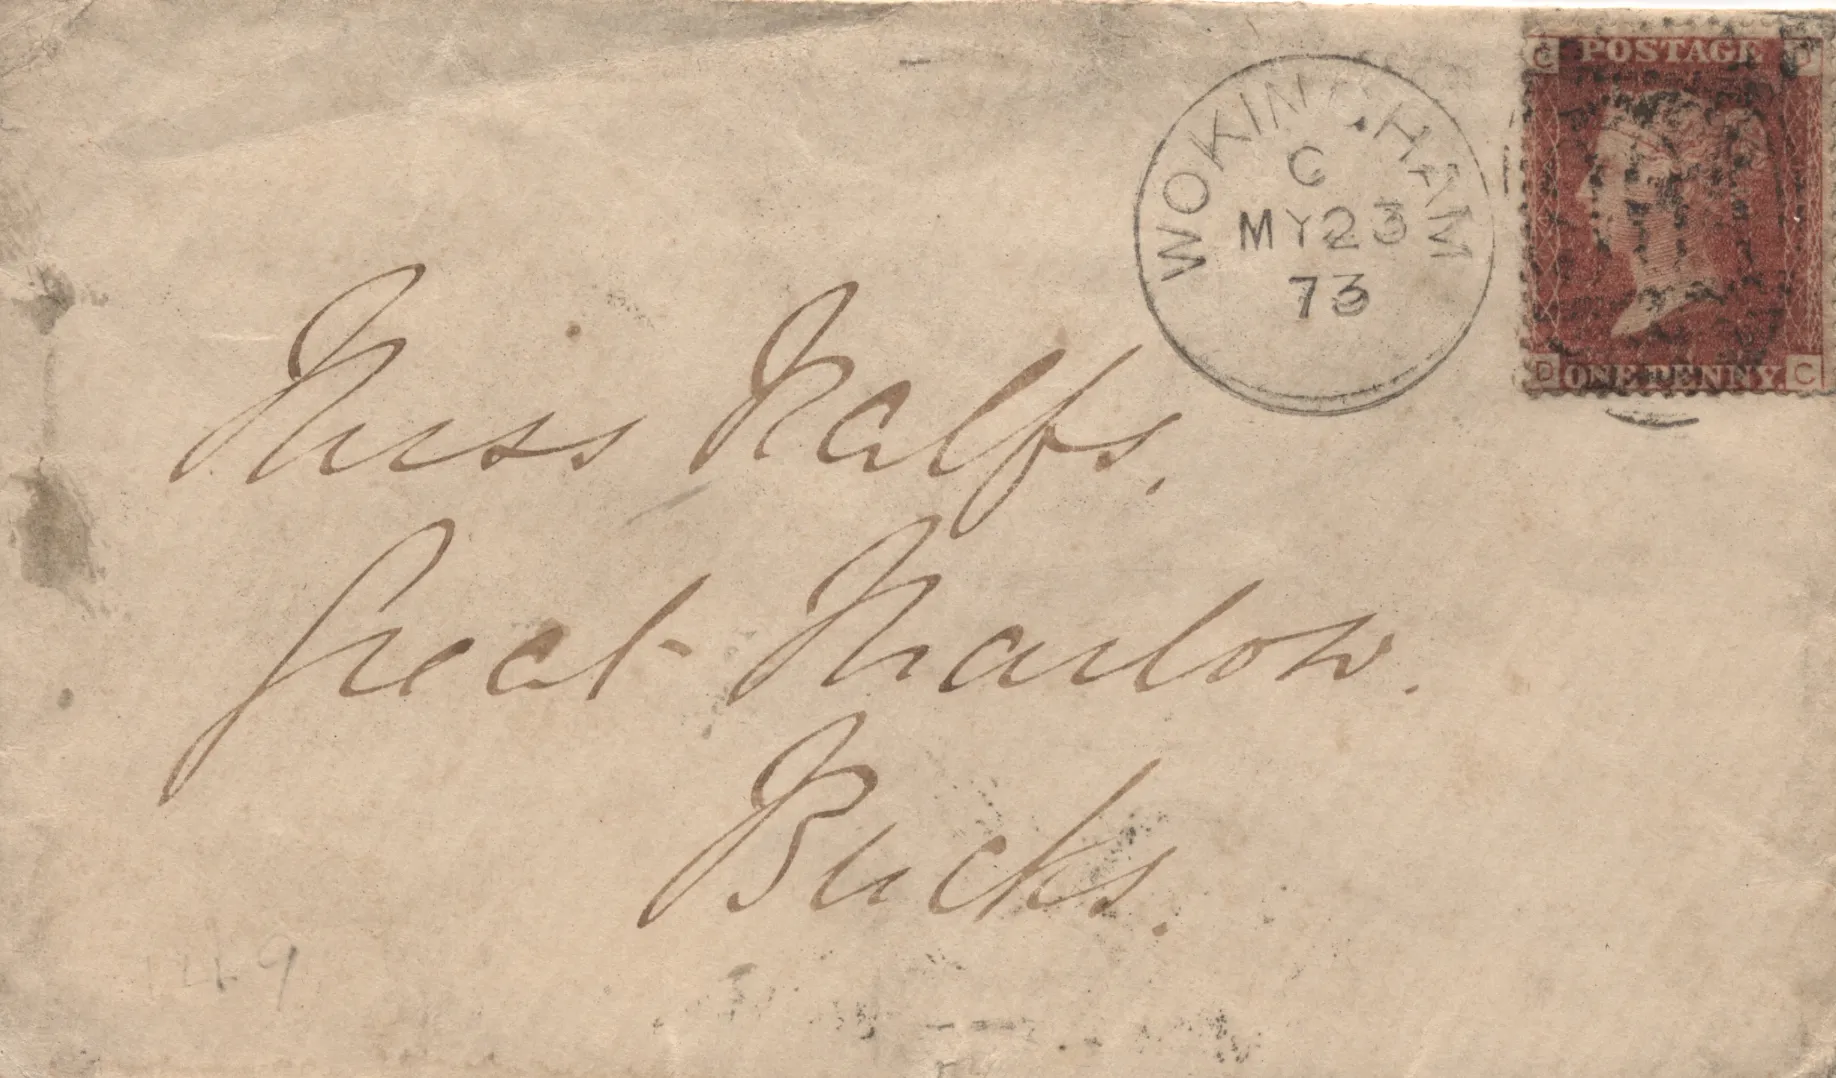 C POSTAGE D
WOKINGHAM
C
MY 23
73
D ONE PENNY. C
Miss Ralfs.
Great Marlow.
Bucks.
149